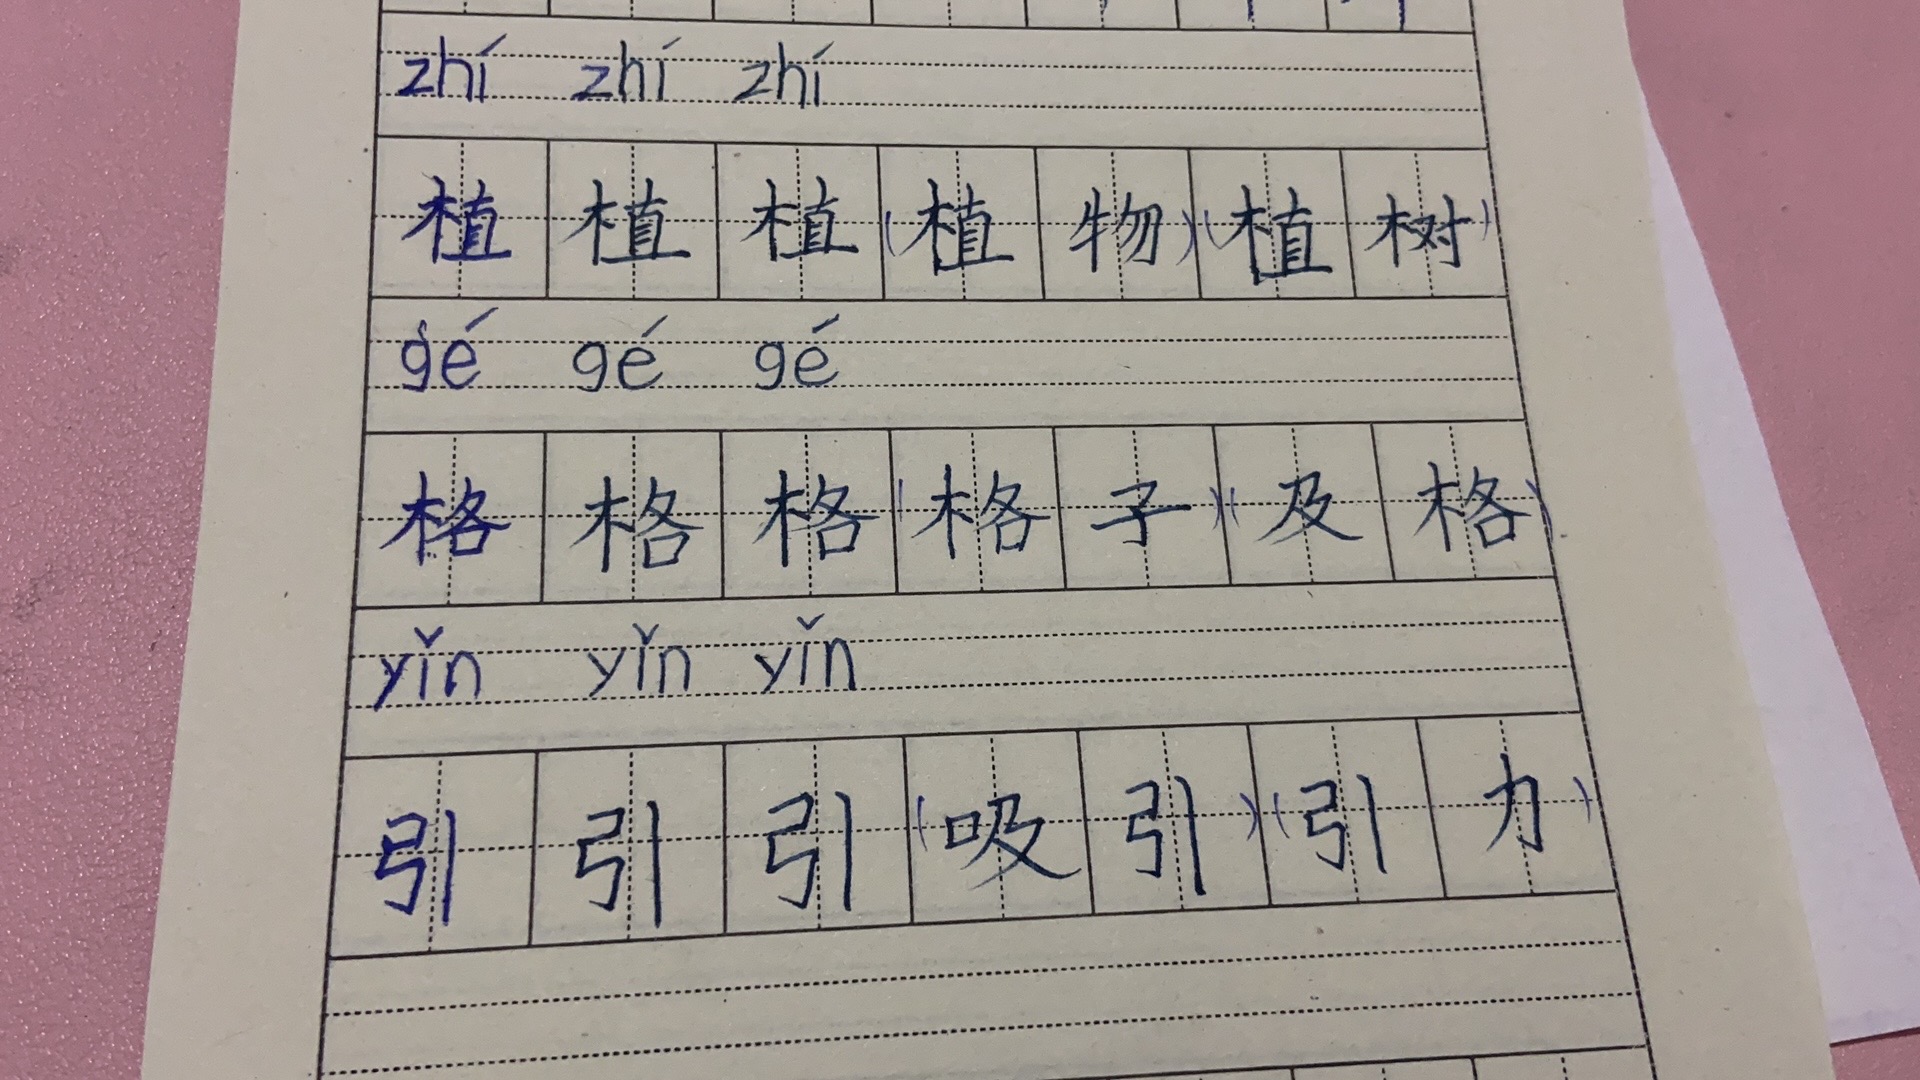 zhí zhí zhí
植植植(植物)(植树)
gé gé gé
格格格(格子)(及格)
yǐn yǐn yǐn
引引引(吸引)(引力)